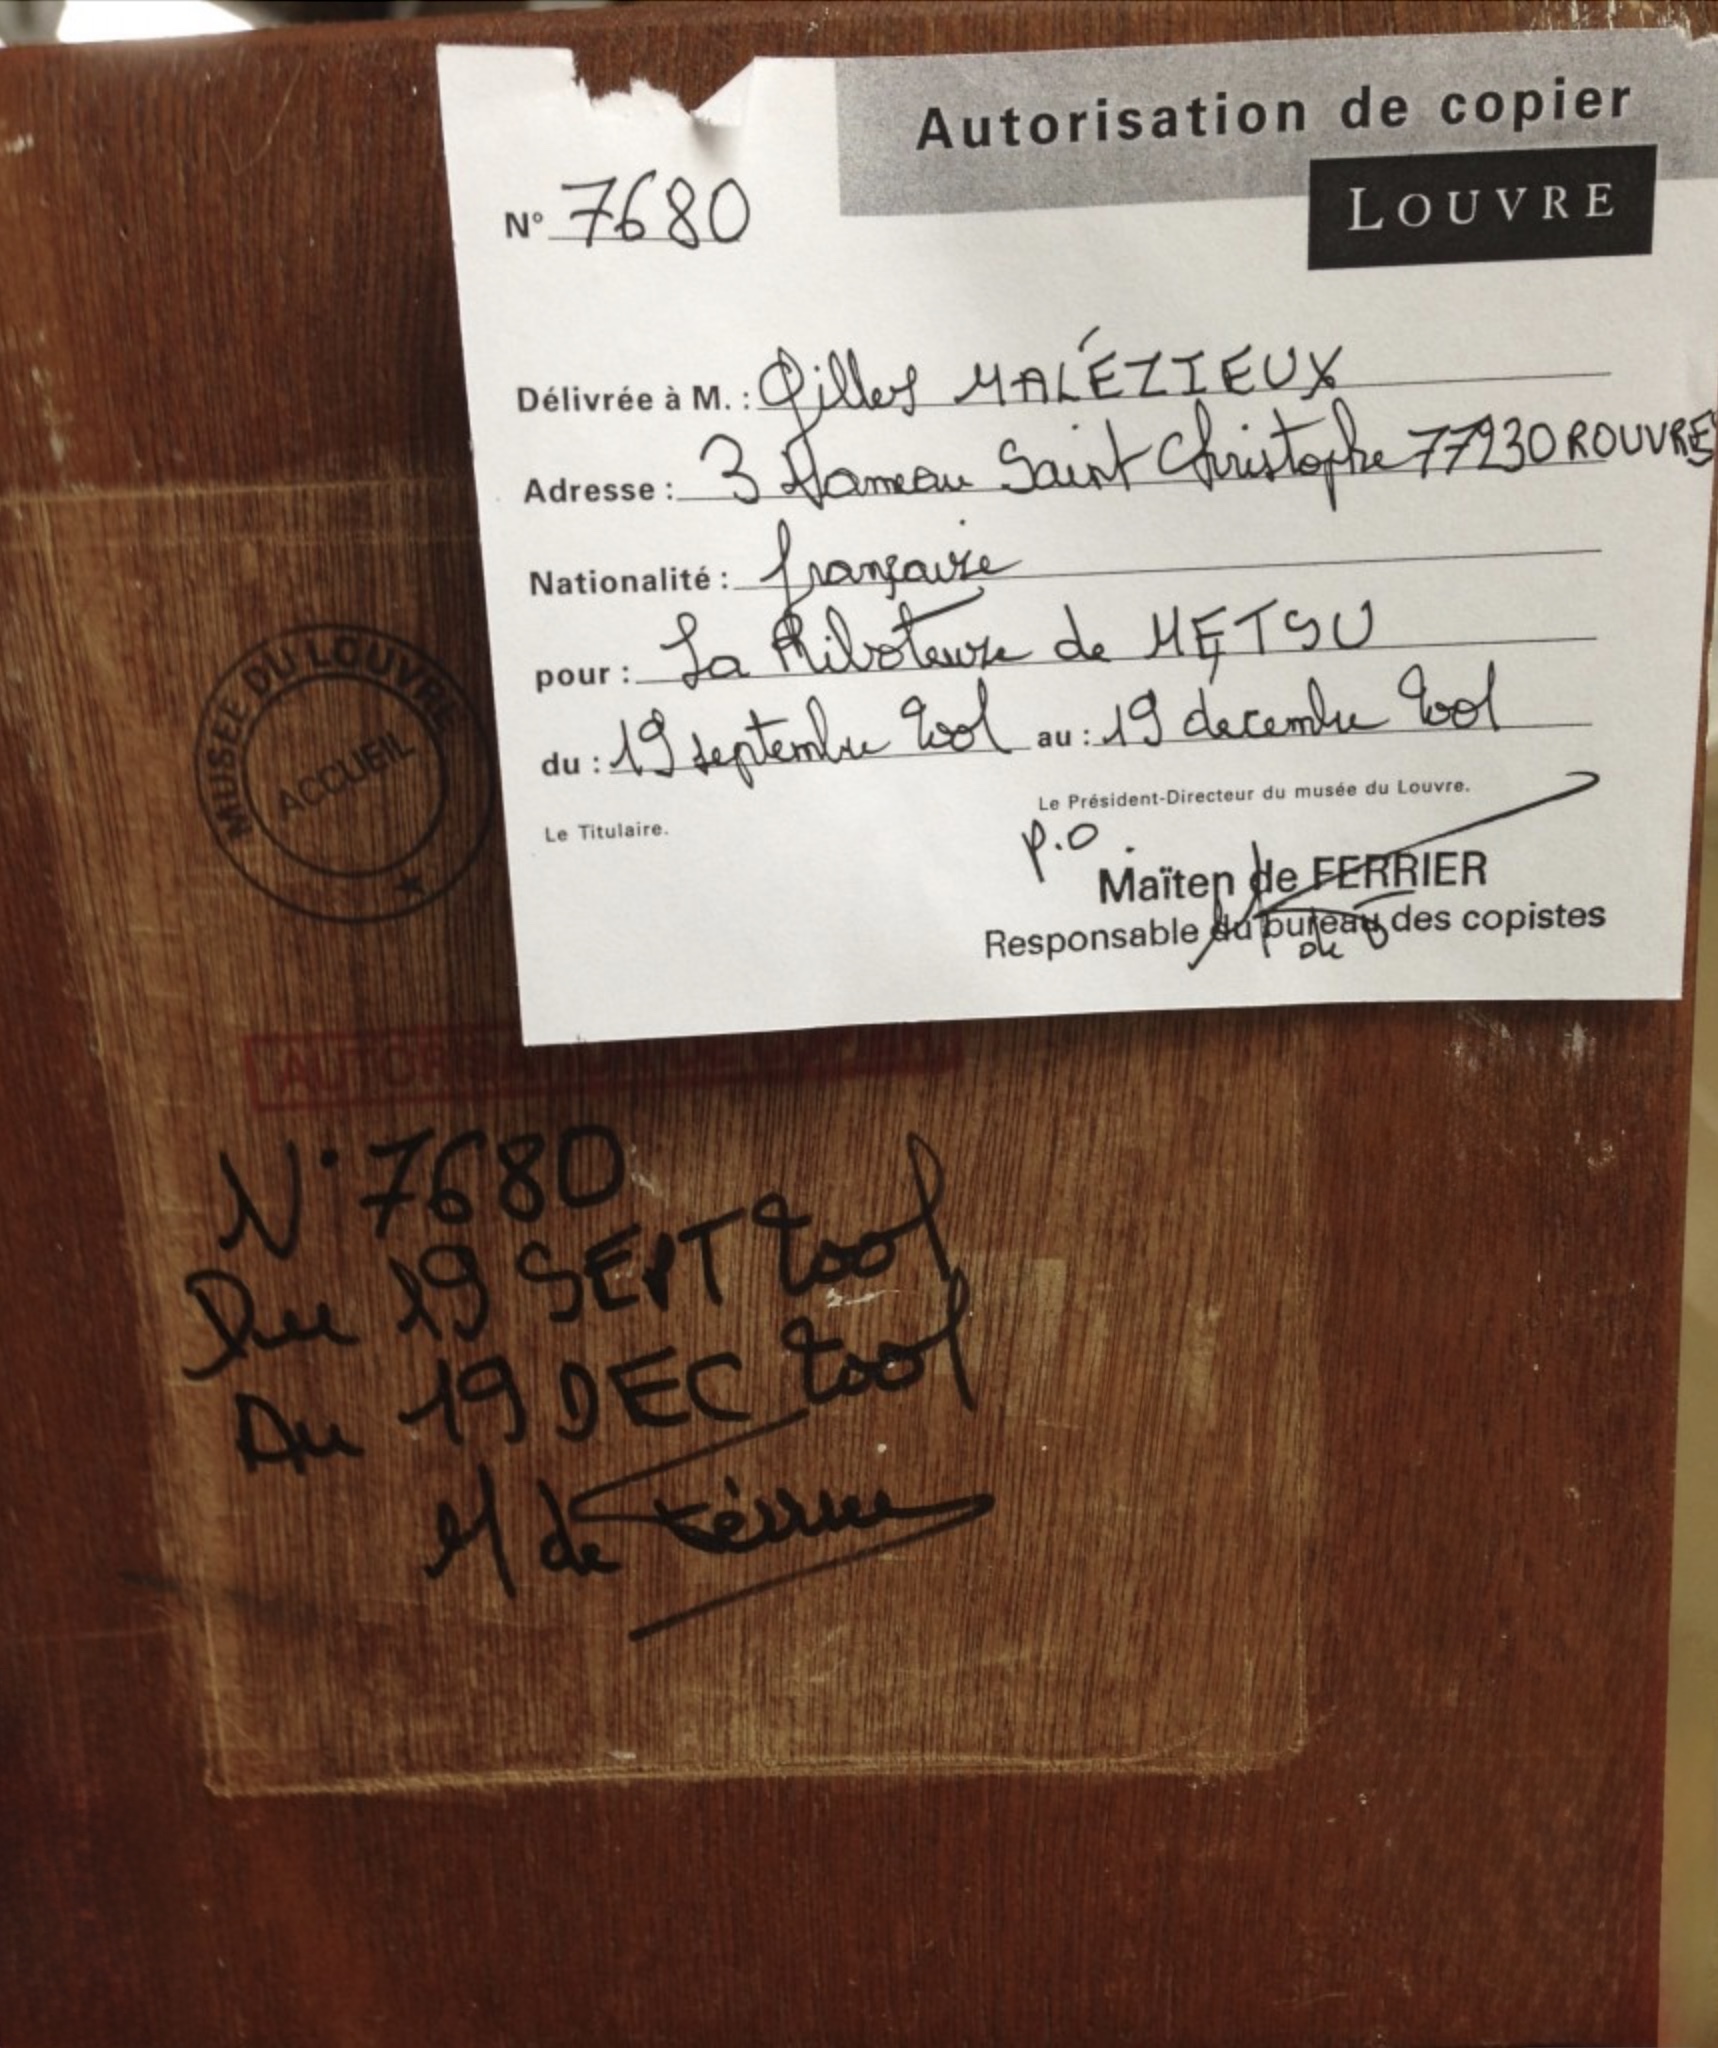 Autorisation de copier
LOUVRE
N° 7680
Délivrée à M. : Gilles MALÉZIEUX
Adresse : 3 Hameau Saint Christophe 77230 ROUVRES
Nationalité : française
pour : La Riboteuse de METSU
du : 19 septembre 2001 au : 19 decembre 2001
Le Président-Directeur du musée du Louvre.
Le Titulaire.
p.o
Maïten de FERRIER
Responsable du bureau des copistes
MUSEE DU LOUVRE
ACCUEIL
N° 7680
Du 19 SEPT 2001
Au 19 DEC 2001
M de Ferrier